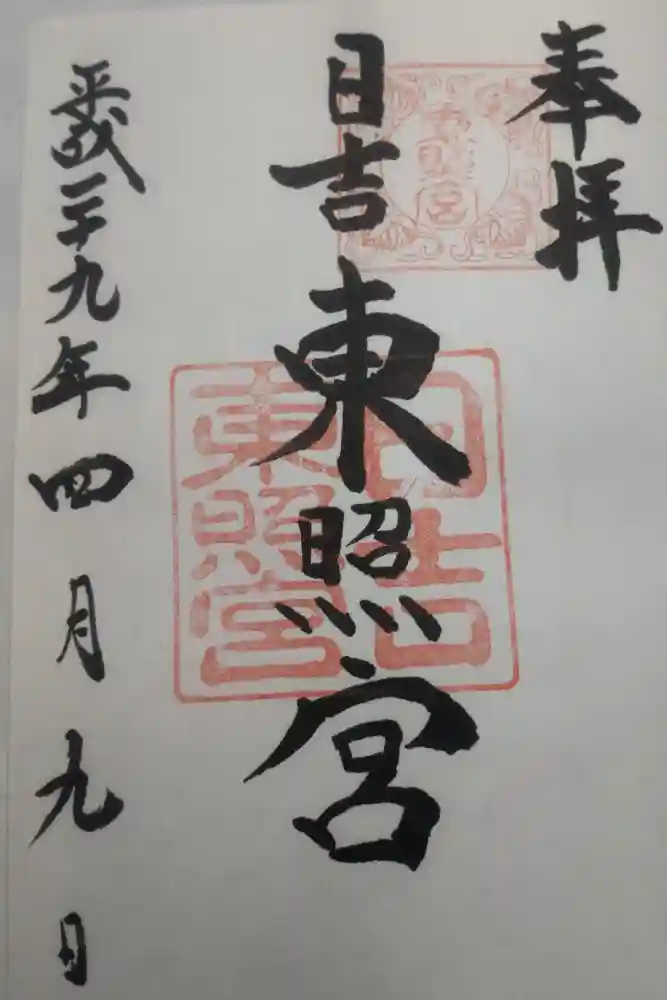 奉拝
日吉東照宮
平成二十九年四月九日
東照宮
日吉
東照宮